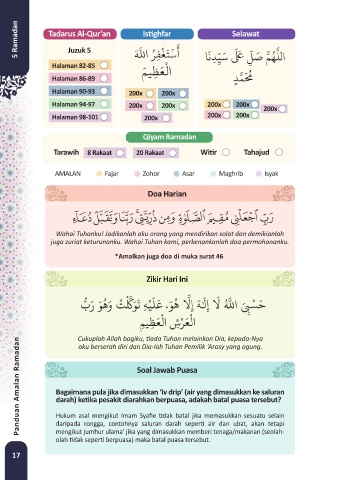 5 Ramadan
Tadarus Al-Qur'an
Juzuk 5
Halaman 82-85
Halaman 86-89
Halaman 90-93
Halaman 94-97
Halaman 98-101
Istighfar
أَسْتَغْفِرُ اللَّهَ
الْعَظِيمَ
200x 200x
200x 200x
200x
Selawat
اللَّهُمَّ صَلِّ عَلَىٰ سَيِّدِنَا
مُحَمَّدٍ
200x 200x
200x
200x 200x
Qiyam Ramadan
Tarawih 8 Rakaat 20 Rakaat Witir Tahajud
AMALAN Fajar Zohor Asar Maghrib Isyak
Doa Harian
رَبِّ ٱجْعَلْنِى مُقِيمَ ٱلصَّلَوٰةِ وَمِن ذُرِّيَّتِى رَبَّنَا وَتَقَبَّلْ دُعَآءِ
Wahai Tuhanku! Jadikanlah aku orang yang mendirikan solat dan demikianlah
juga zuriat keturunanku. Wahai Tuhan kami, perkenankanlah doa permohonanku.
*Amalkan juga doa di muka surat 46
Zikir Hari Ini
حَسْبِيَ اللَّهُ لَا إِلَٰهَ إِلَّا هُوَ، عَلَيْهِ تَوَكَّلْتُ وَهُوَ رَبُّ
الْعَرْشِ الْعَظِيمِ
Cukuplah Allah bagiku, tiada Tuhan melainkan Dia, kepada-Nya
aku berserah diri dan Dia-lah Tuhan Pemilik 'Arasy yang agung.
Soal Jawab Puasa
Bagaimana pula jika dimasukkan 'iv drip' (air yang dimasukkan ke saluran
darah) ketika pesakit diarahkan berpuasa, adakah batal puasa tersebut?
Hukum asal mengikut imam Syafie tidak batal jika memasukkan sesuatu selain
daripada rongga, contohnya saluran darah seperti air dan ubat, akan tetapi
mengikut jumhur ulama' jika yang dimasukkan memberi tenaga/makanan (seolah-
olah tidak seperti berpuasa) maka batal puasa tersebut.
Panduan Amalan Ramadan
17